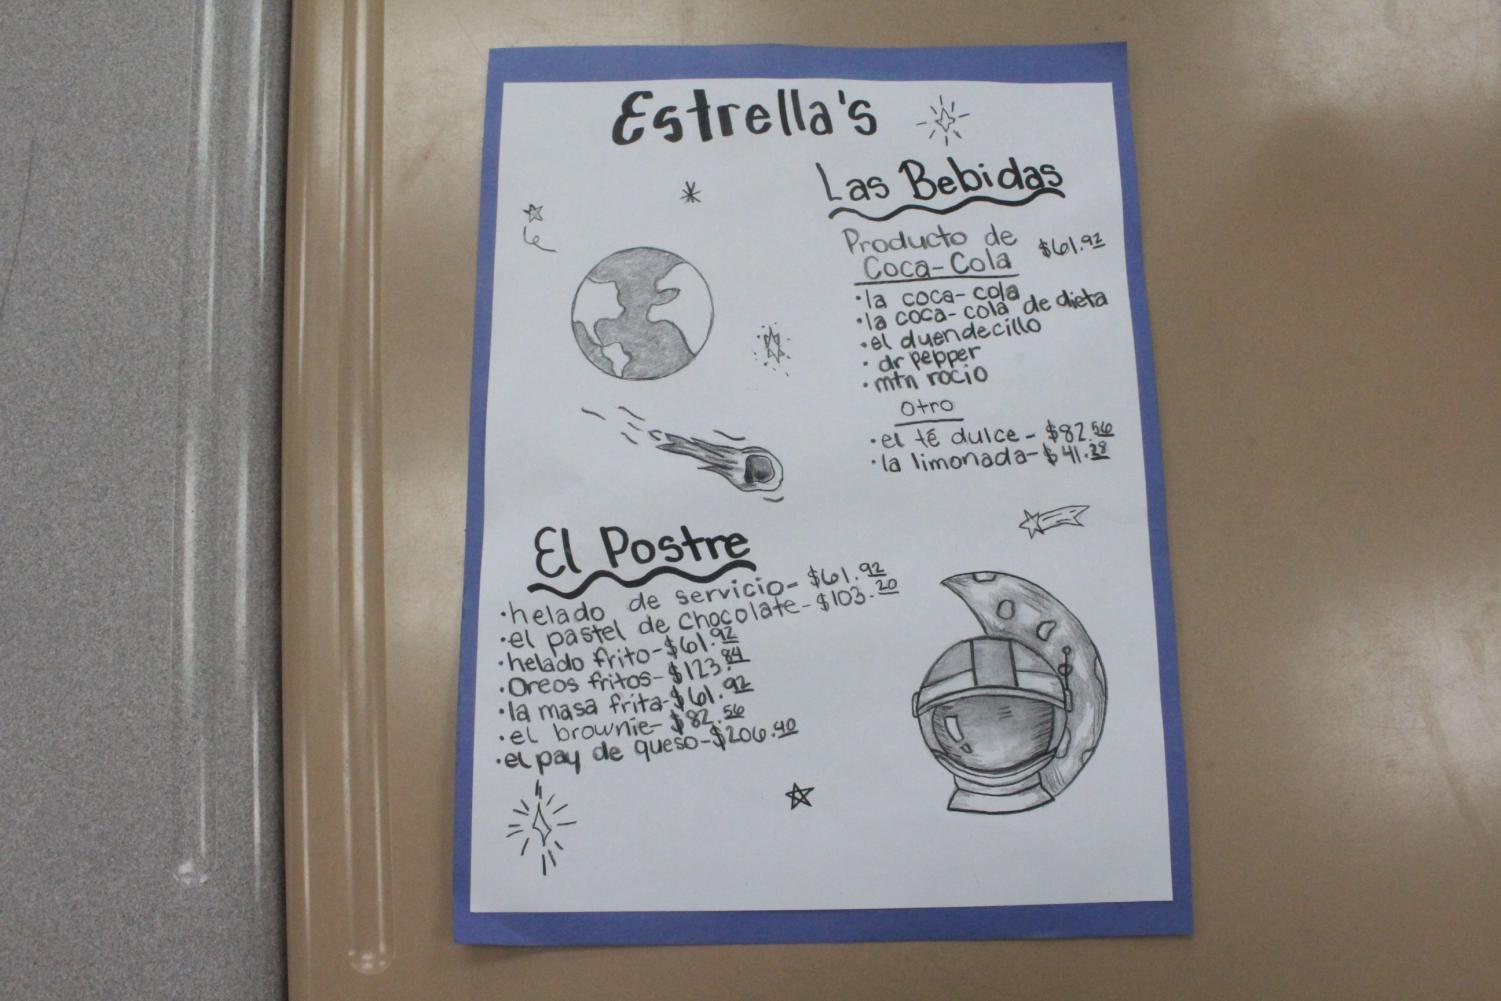 Estrella's
Las Bebidas
Producto de $61.92
Coca-Cola
·la coca-cola
·la coca-cola de dieta
·el duendecillo
·dr pepper
·mtn rocio
otro
·el té dulce- $82.56
·la limonada- $41.28
El Postre
·helado de servicio- $61.92
·el pastel de chocolate- $103.20
·helado frito- $61.92
·Oreos fritos- $123.84
·la masa frita- $61.92
·el brownie- $82.56
·el pay de queso- $206.40